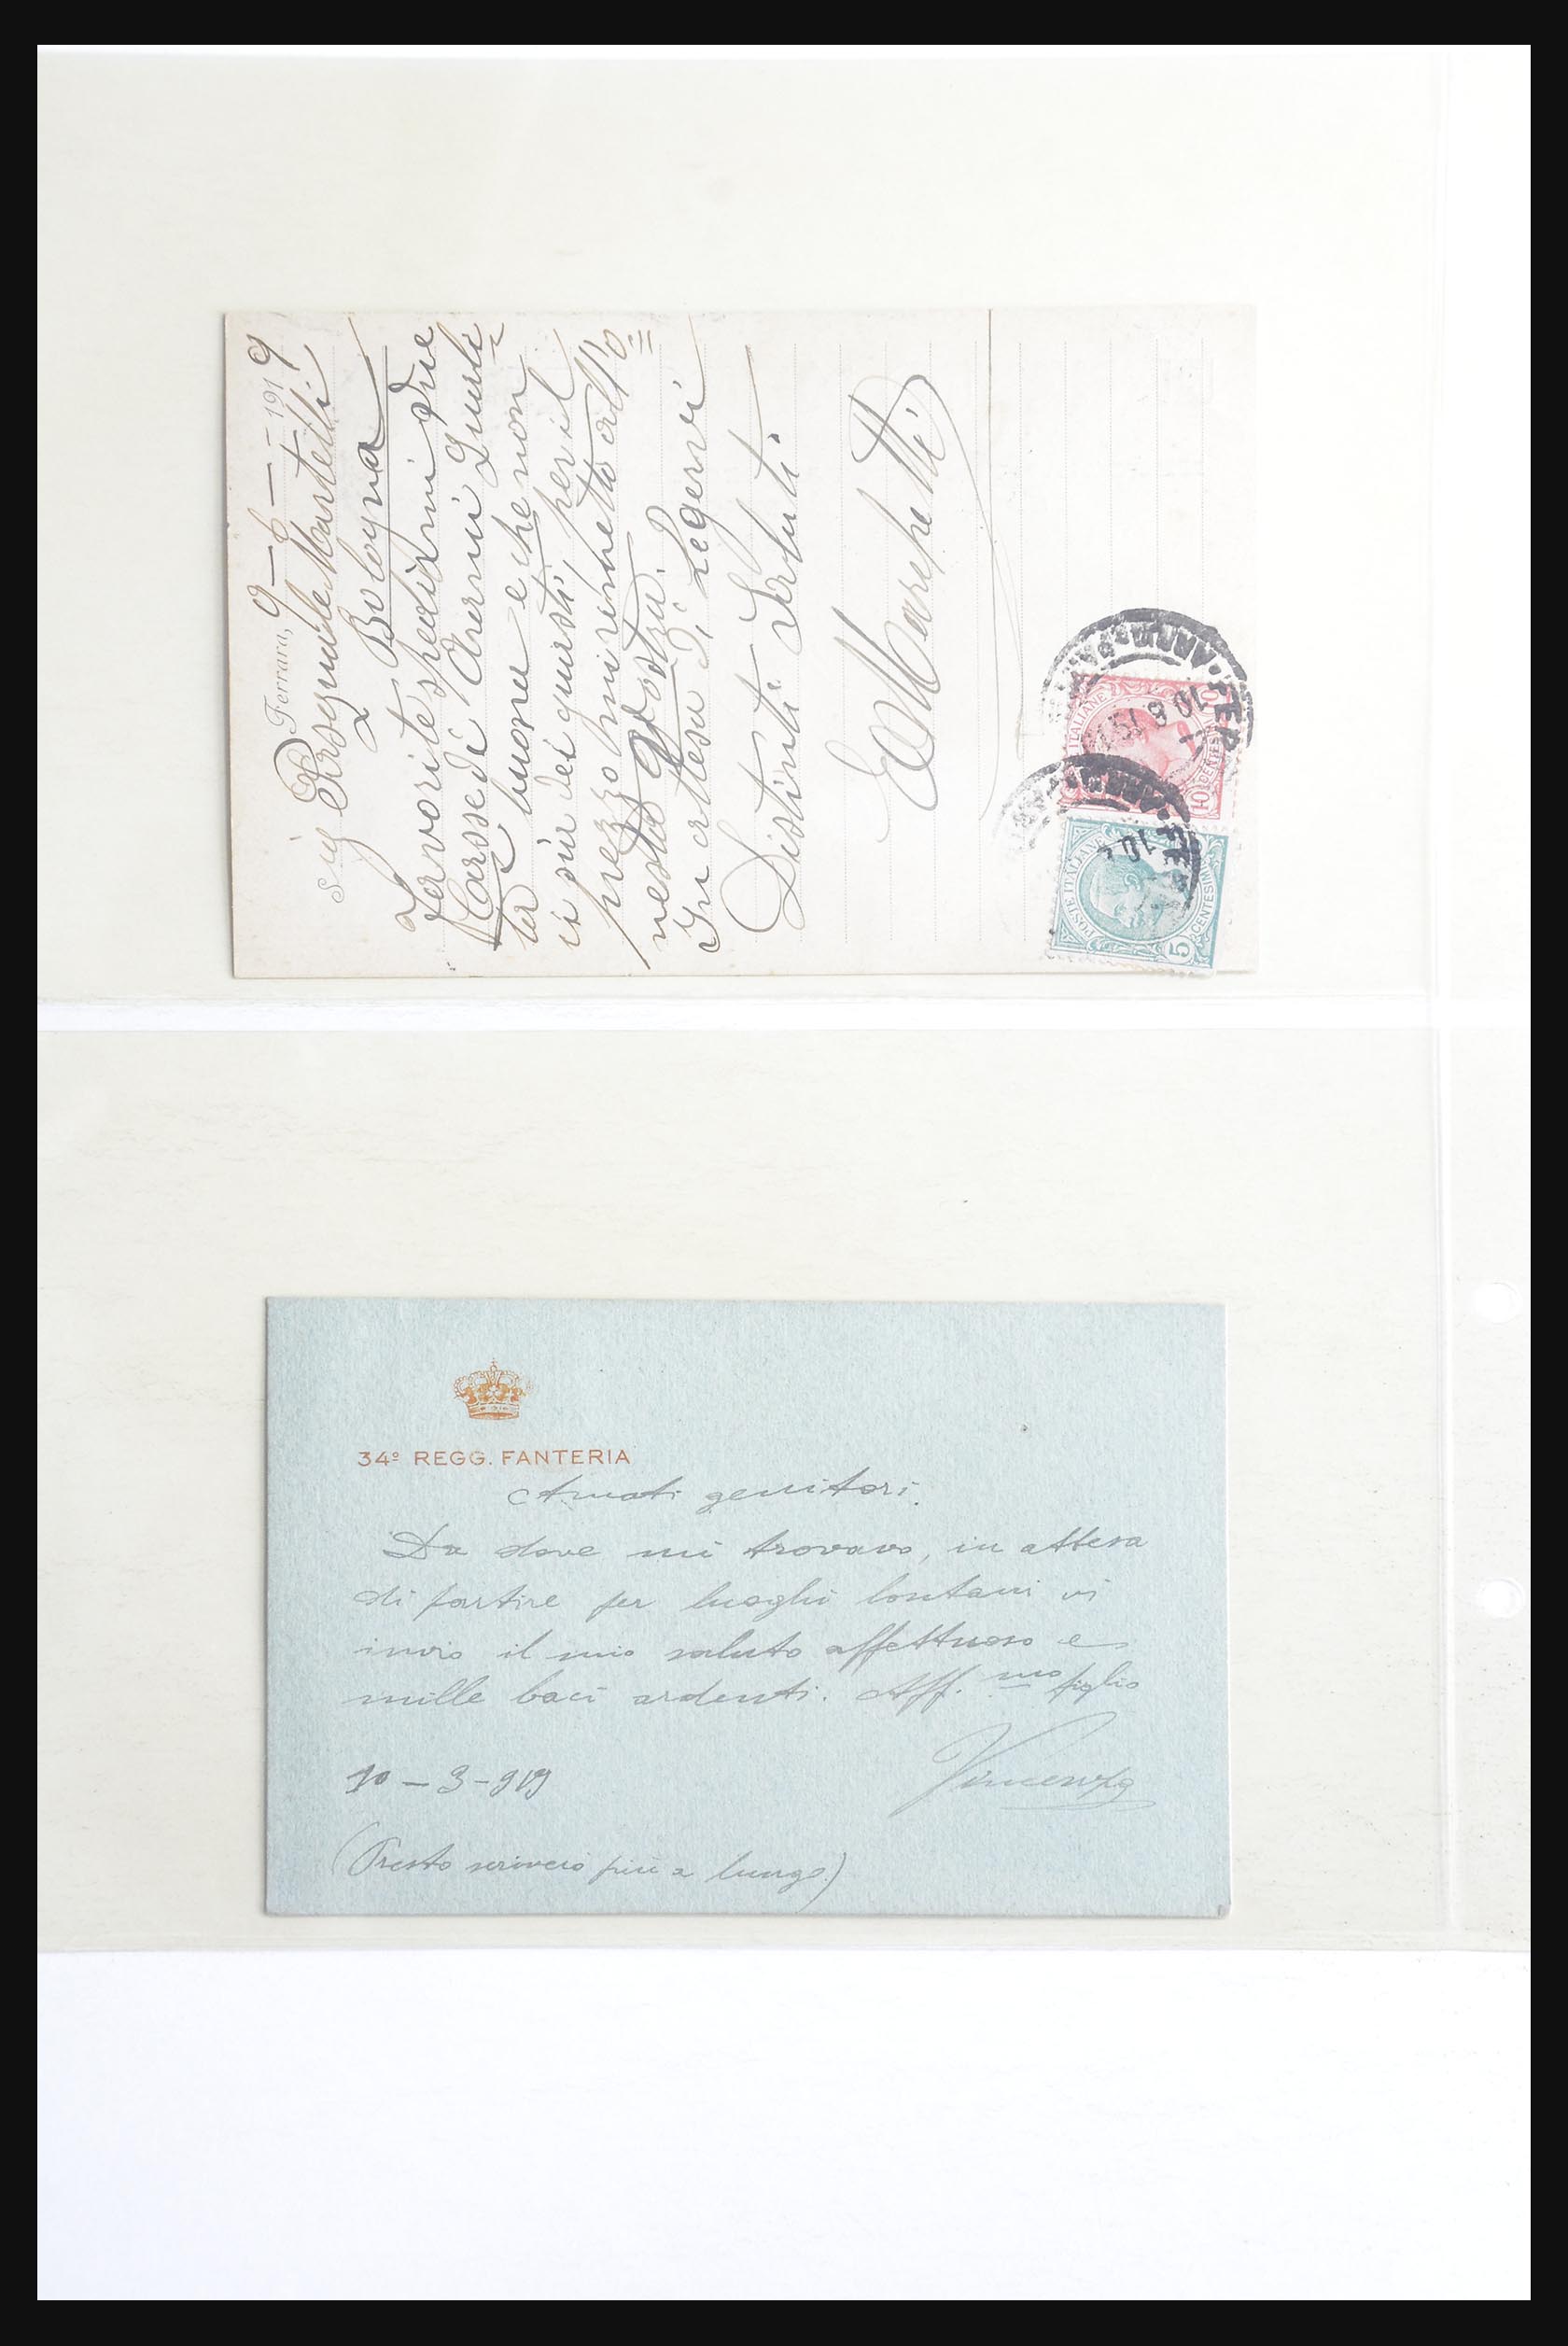 Ferrara, 9 - 6 - 1919
Sig Pasquale Martelli
Bologna
Favorite spedirmi due
Casse di Avermi Giusti
buona e che non
ci sia dei guasti, per il
prezzo mi rimetto all'o=
nestà Vostra.
In attesa di Legervi
Distinti Saluti
E Marchetti
POSTE ITALIANE
CENTESIMI 10
POSTE ITALIANE
5 CENTESIMI
34º REGG. FANTERIA
Amati genitori.
Da dove mi trovavo, in attesa
di partire per luoghi lontani vi
invio il mio saluto affettuoso e
mille baci ardenti. Aff.mo figlio
Vincenzo
10 - 3 - 919
(Presto scriverò più a lungo.)